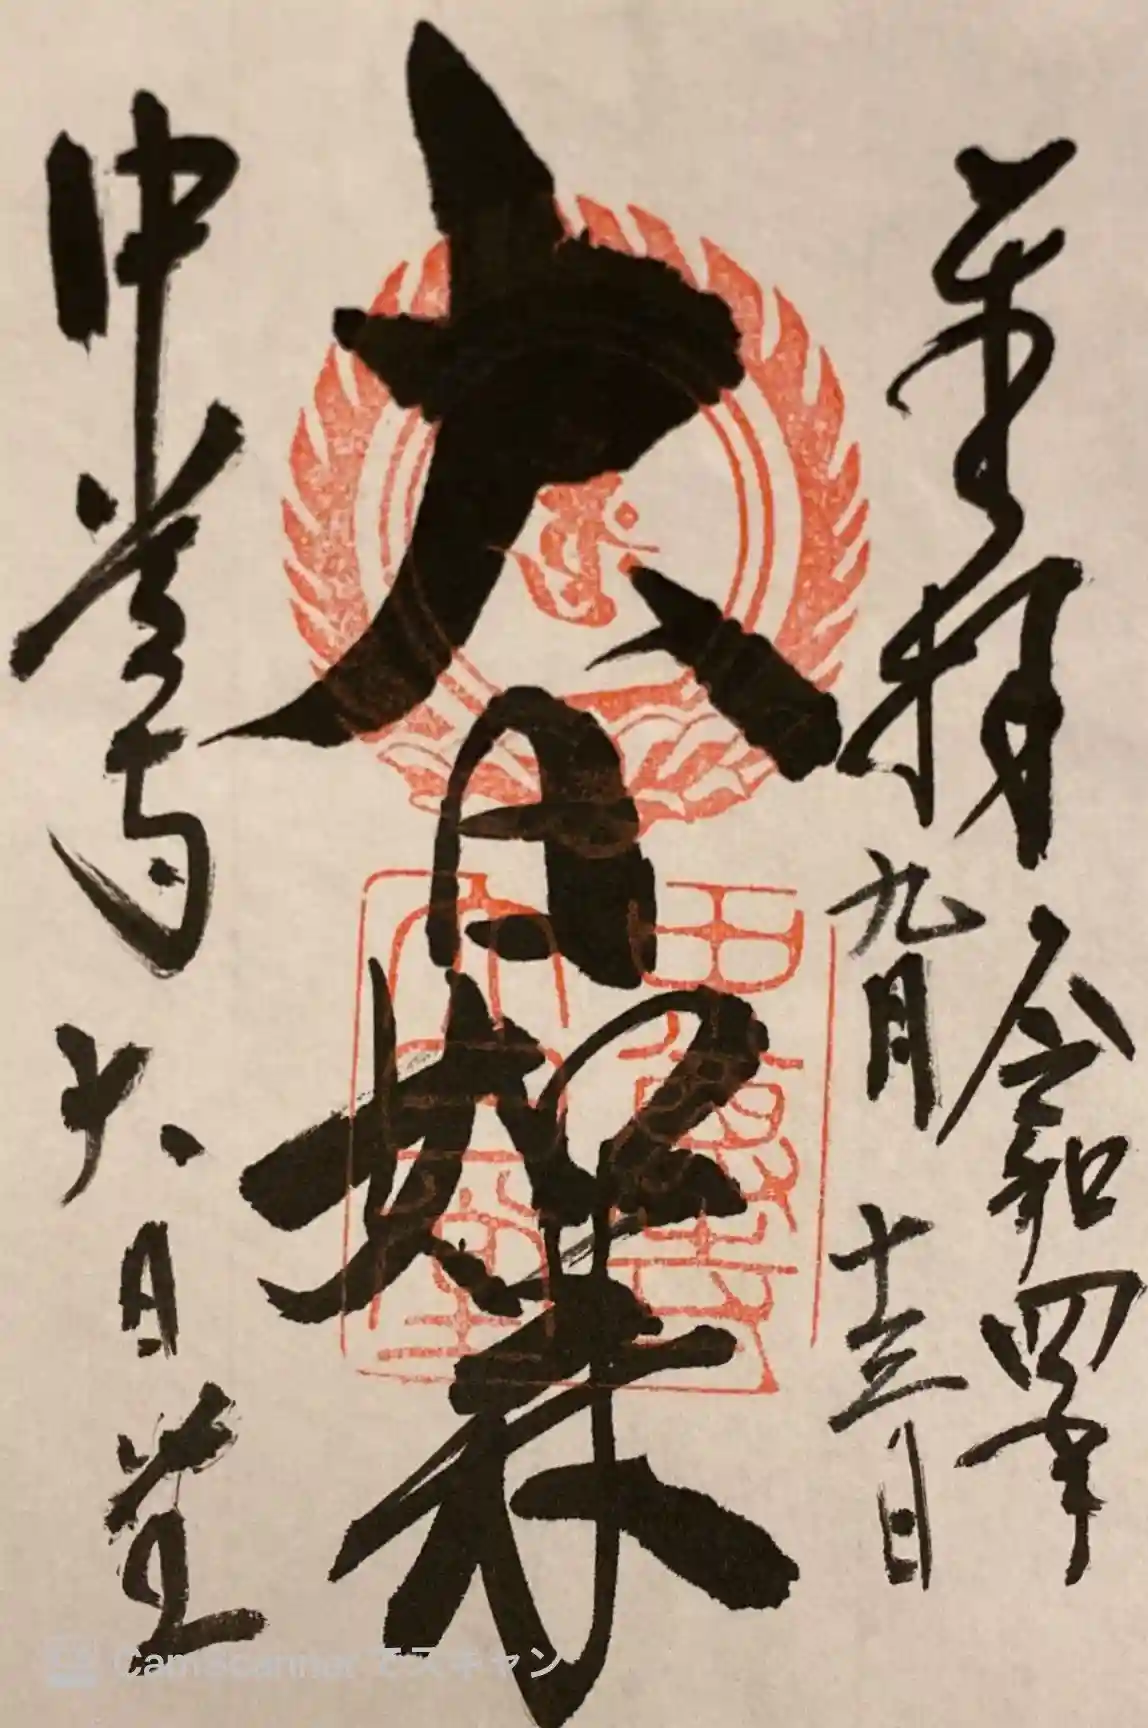 奉拝 令和四年
九月十三日
大日如来
中尊寺 大日堂
CamScannerでスキャン